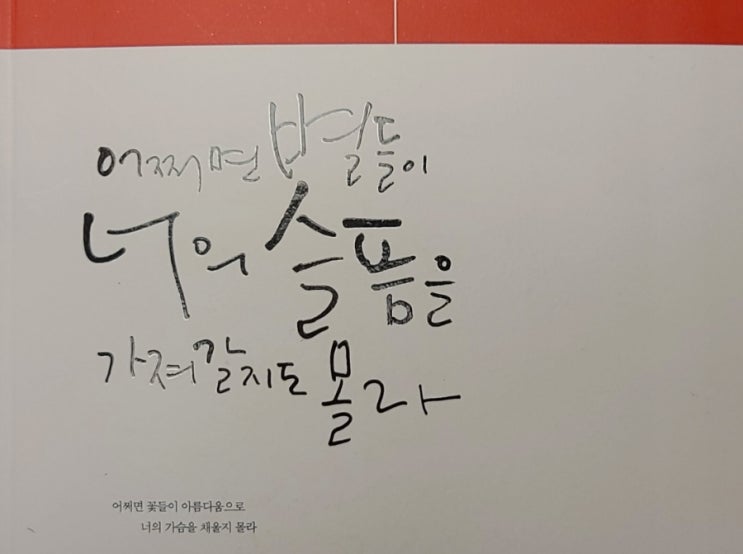 어쩌면 별들이
너의 슬픔을
가져갈지도 몰라
어쩌면 꽃들이 아름다움으로
너의 가슴을 채울지 몰라